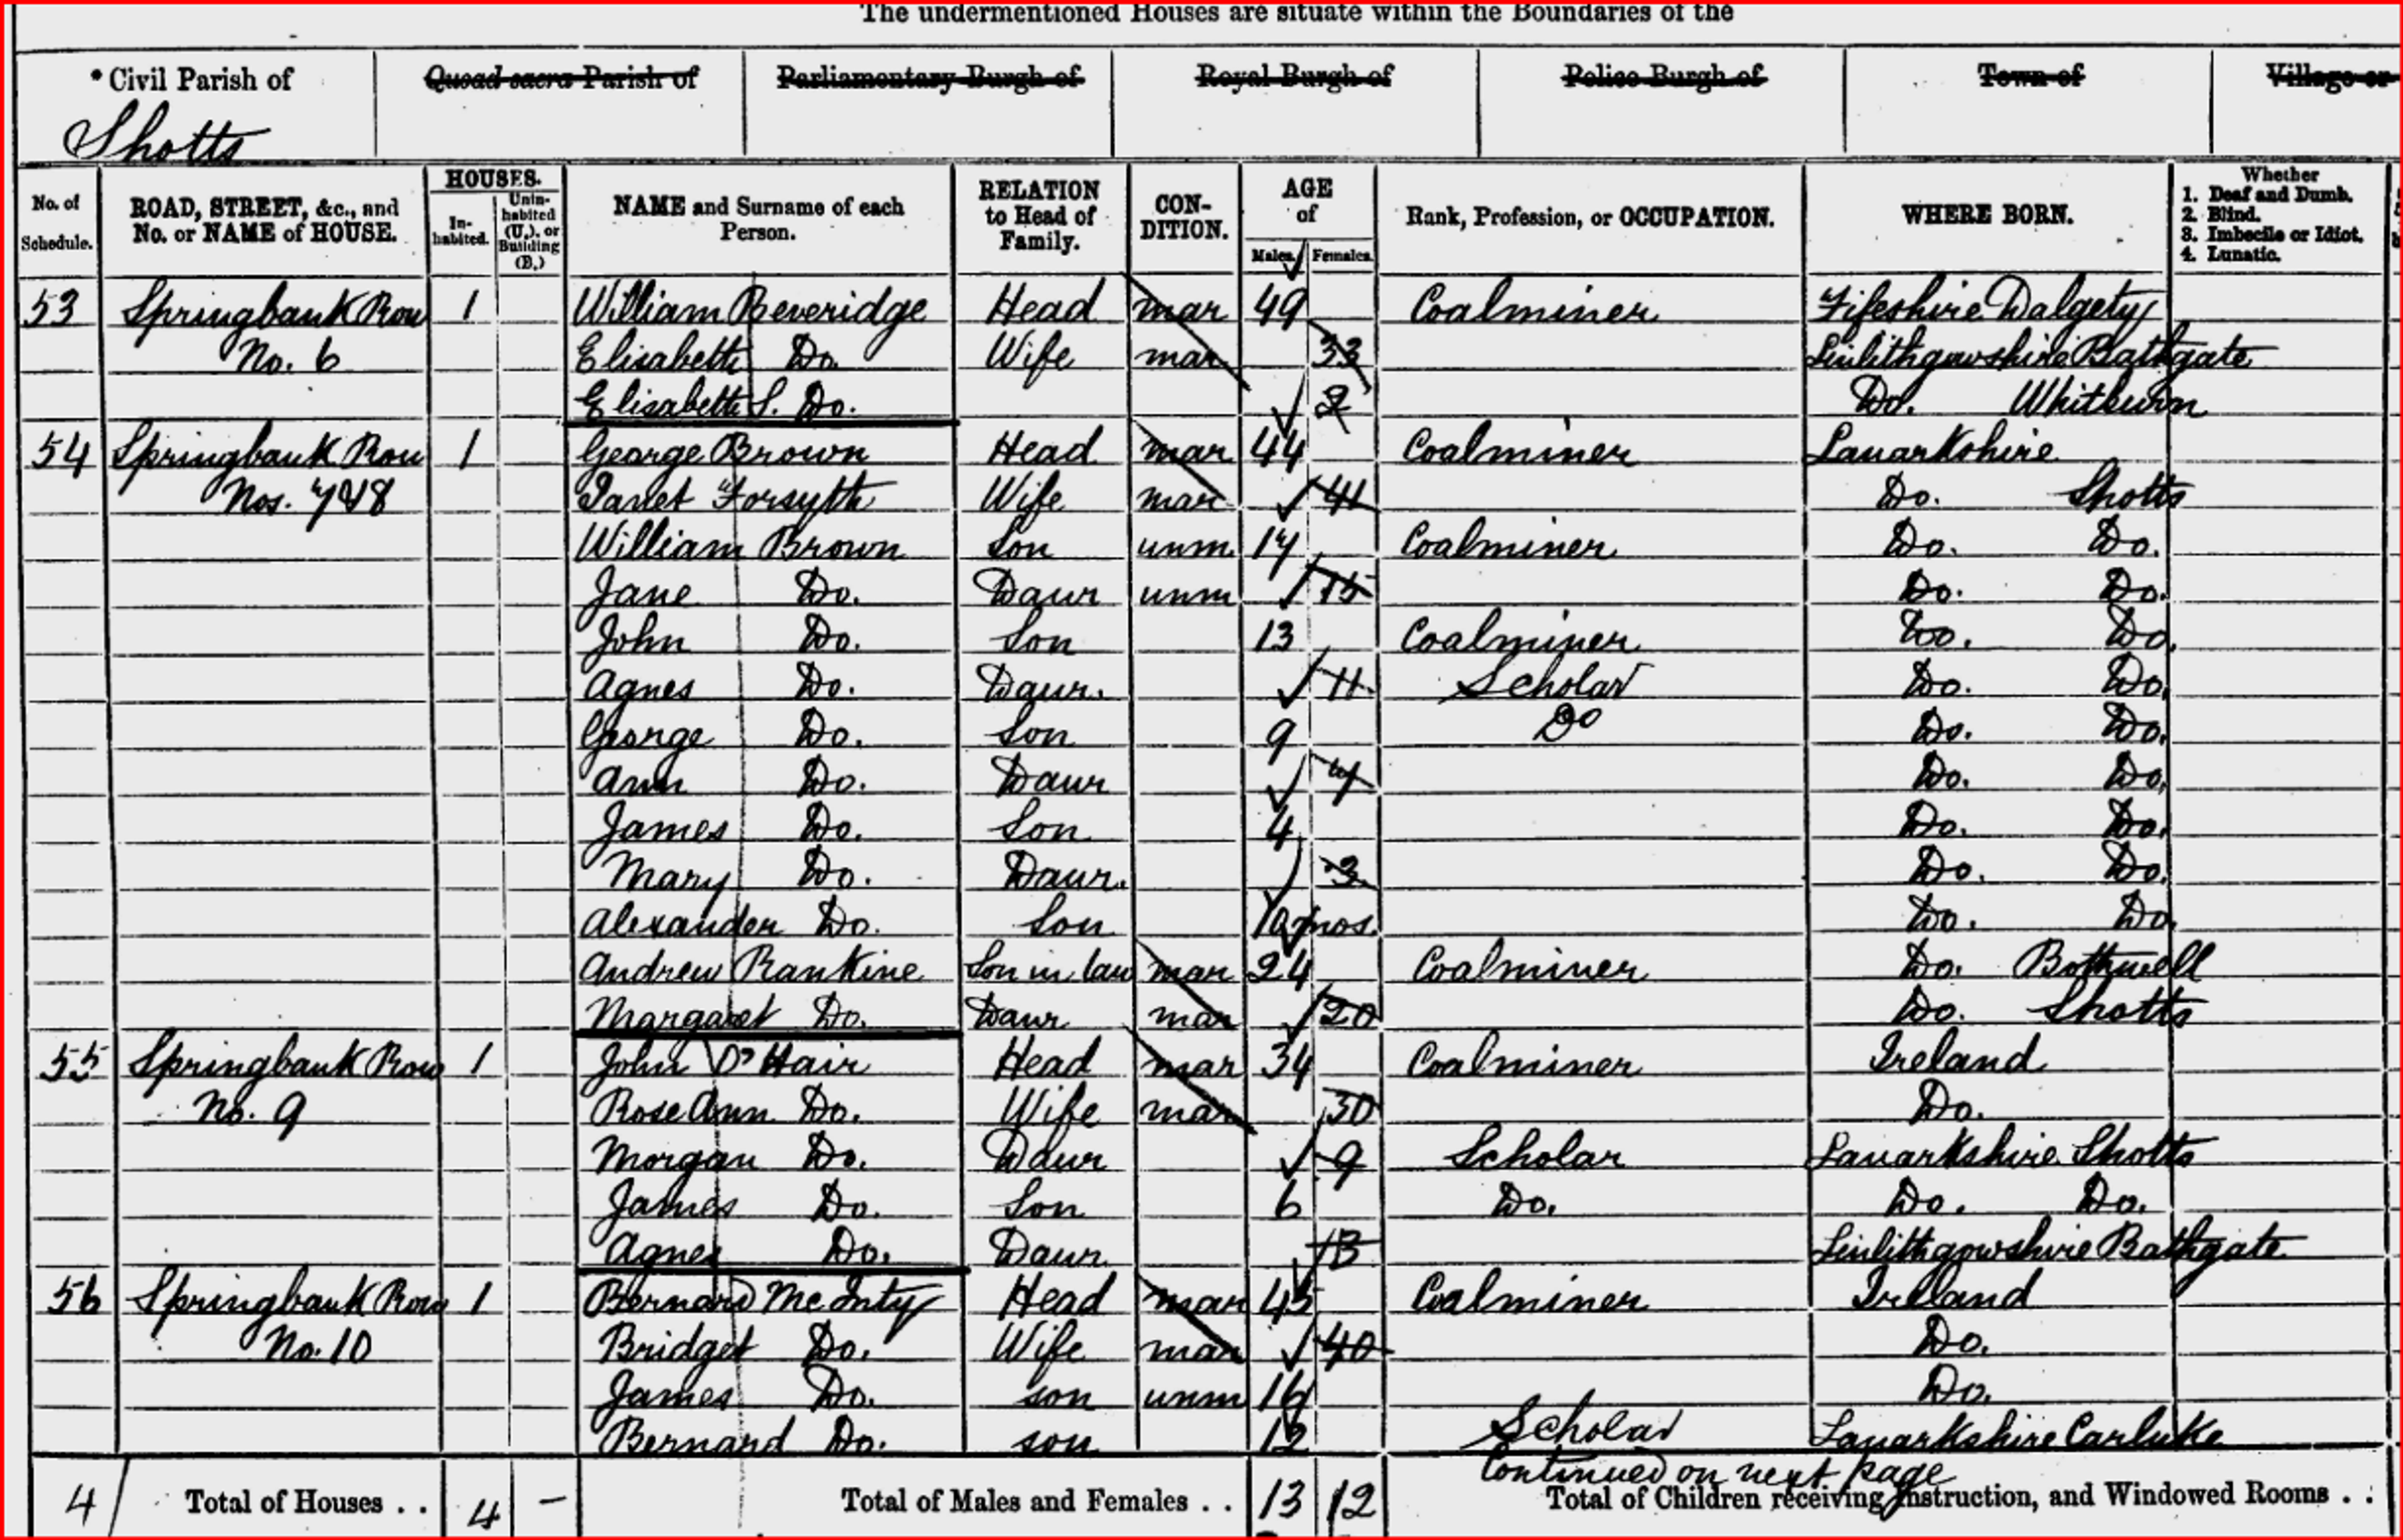 The undermentioned Houses are situate within the Boundaries of the
* Civil Parish of Quoad sacra Parish of Parliamentary Burgh of Royal Burgh of Police Burgh of Town of Village or
Shotts
No. of Schedule. ROAD, STREET, &c., and No. or NAME of HOUSE. HOUSES. In-habited. Unin-habited (U.), or Building (B.) NAME and Surname of each Person. RELATION to Head of Family. CON-DITION. AGE of Males. Females. Rank, Profession, or OCCUPATION. WHERE BORN. Whether 1. Deaf and Dumb. 2. Blind. 3. Imbecile or Idiot. 4. Lunatic.
53 Springbank Row 1 William Beveridge Head mar 49 Coalminer Fifeshire Dalgety
No. 6 Elisabeth Do. Wife mar 33 Linlithgowshire Bathgate
Elisabeth S. Do. 2 Do. Whitburn
54 Springbank Row 1 George Brown Head mar 44 Coalminer Lanarkshire
Nos. 7 & 8 Janet Forsyth Wife mar 41 Do. Shotts
William Brown Son unm 17 Coalminer Do. Do.
Jane Do. Daur unm 15 Do. Do.
John Do. Son 13 Coalminer Do. Do.
Agnes Do. Daur. 11 Scholar Do. Do.
George Do. Son 9 Do Do. Do.
Ann Do. Daur 7 Do. Do.
James Do. Son 4 Do. Do.
Mary Do. Daur. 3 Do. Do.
Alexander Do. Son 10 mos. Do. Do.
Andrew Rankine Son in law mar 24 Coalminer Do. Bothwell
Margaret Do. Daur mar 20 Do. Shotts
55 Springbank Row 1 John O'Hair Head mar 34 Coalminer Ireland
No. 9 Rose Ann Do. Wife mar 30 Do.
Morgan Do. Daur 9 Scholar Lanarkshire Shotts
James Do. Son 6 Do. Do. Do.
Agnes Do. Daur Linlithgowshire Bathgate
56 Springbank Row 1 Bernard McInty Head mar 45 Coalminer Ireland
No. 10 Bridget Do. Wife mar 40 Do.
James Do. son unm 16 Do.
Bernard Do. son 12 Scholar Lanarkshire Carluke
Continued on next page
4 Total of Houses . . 4 – Total of Males and Females . . 13 12 Total of Children receiving Instruction, and Windowed Rooms . .